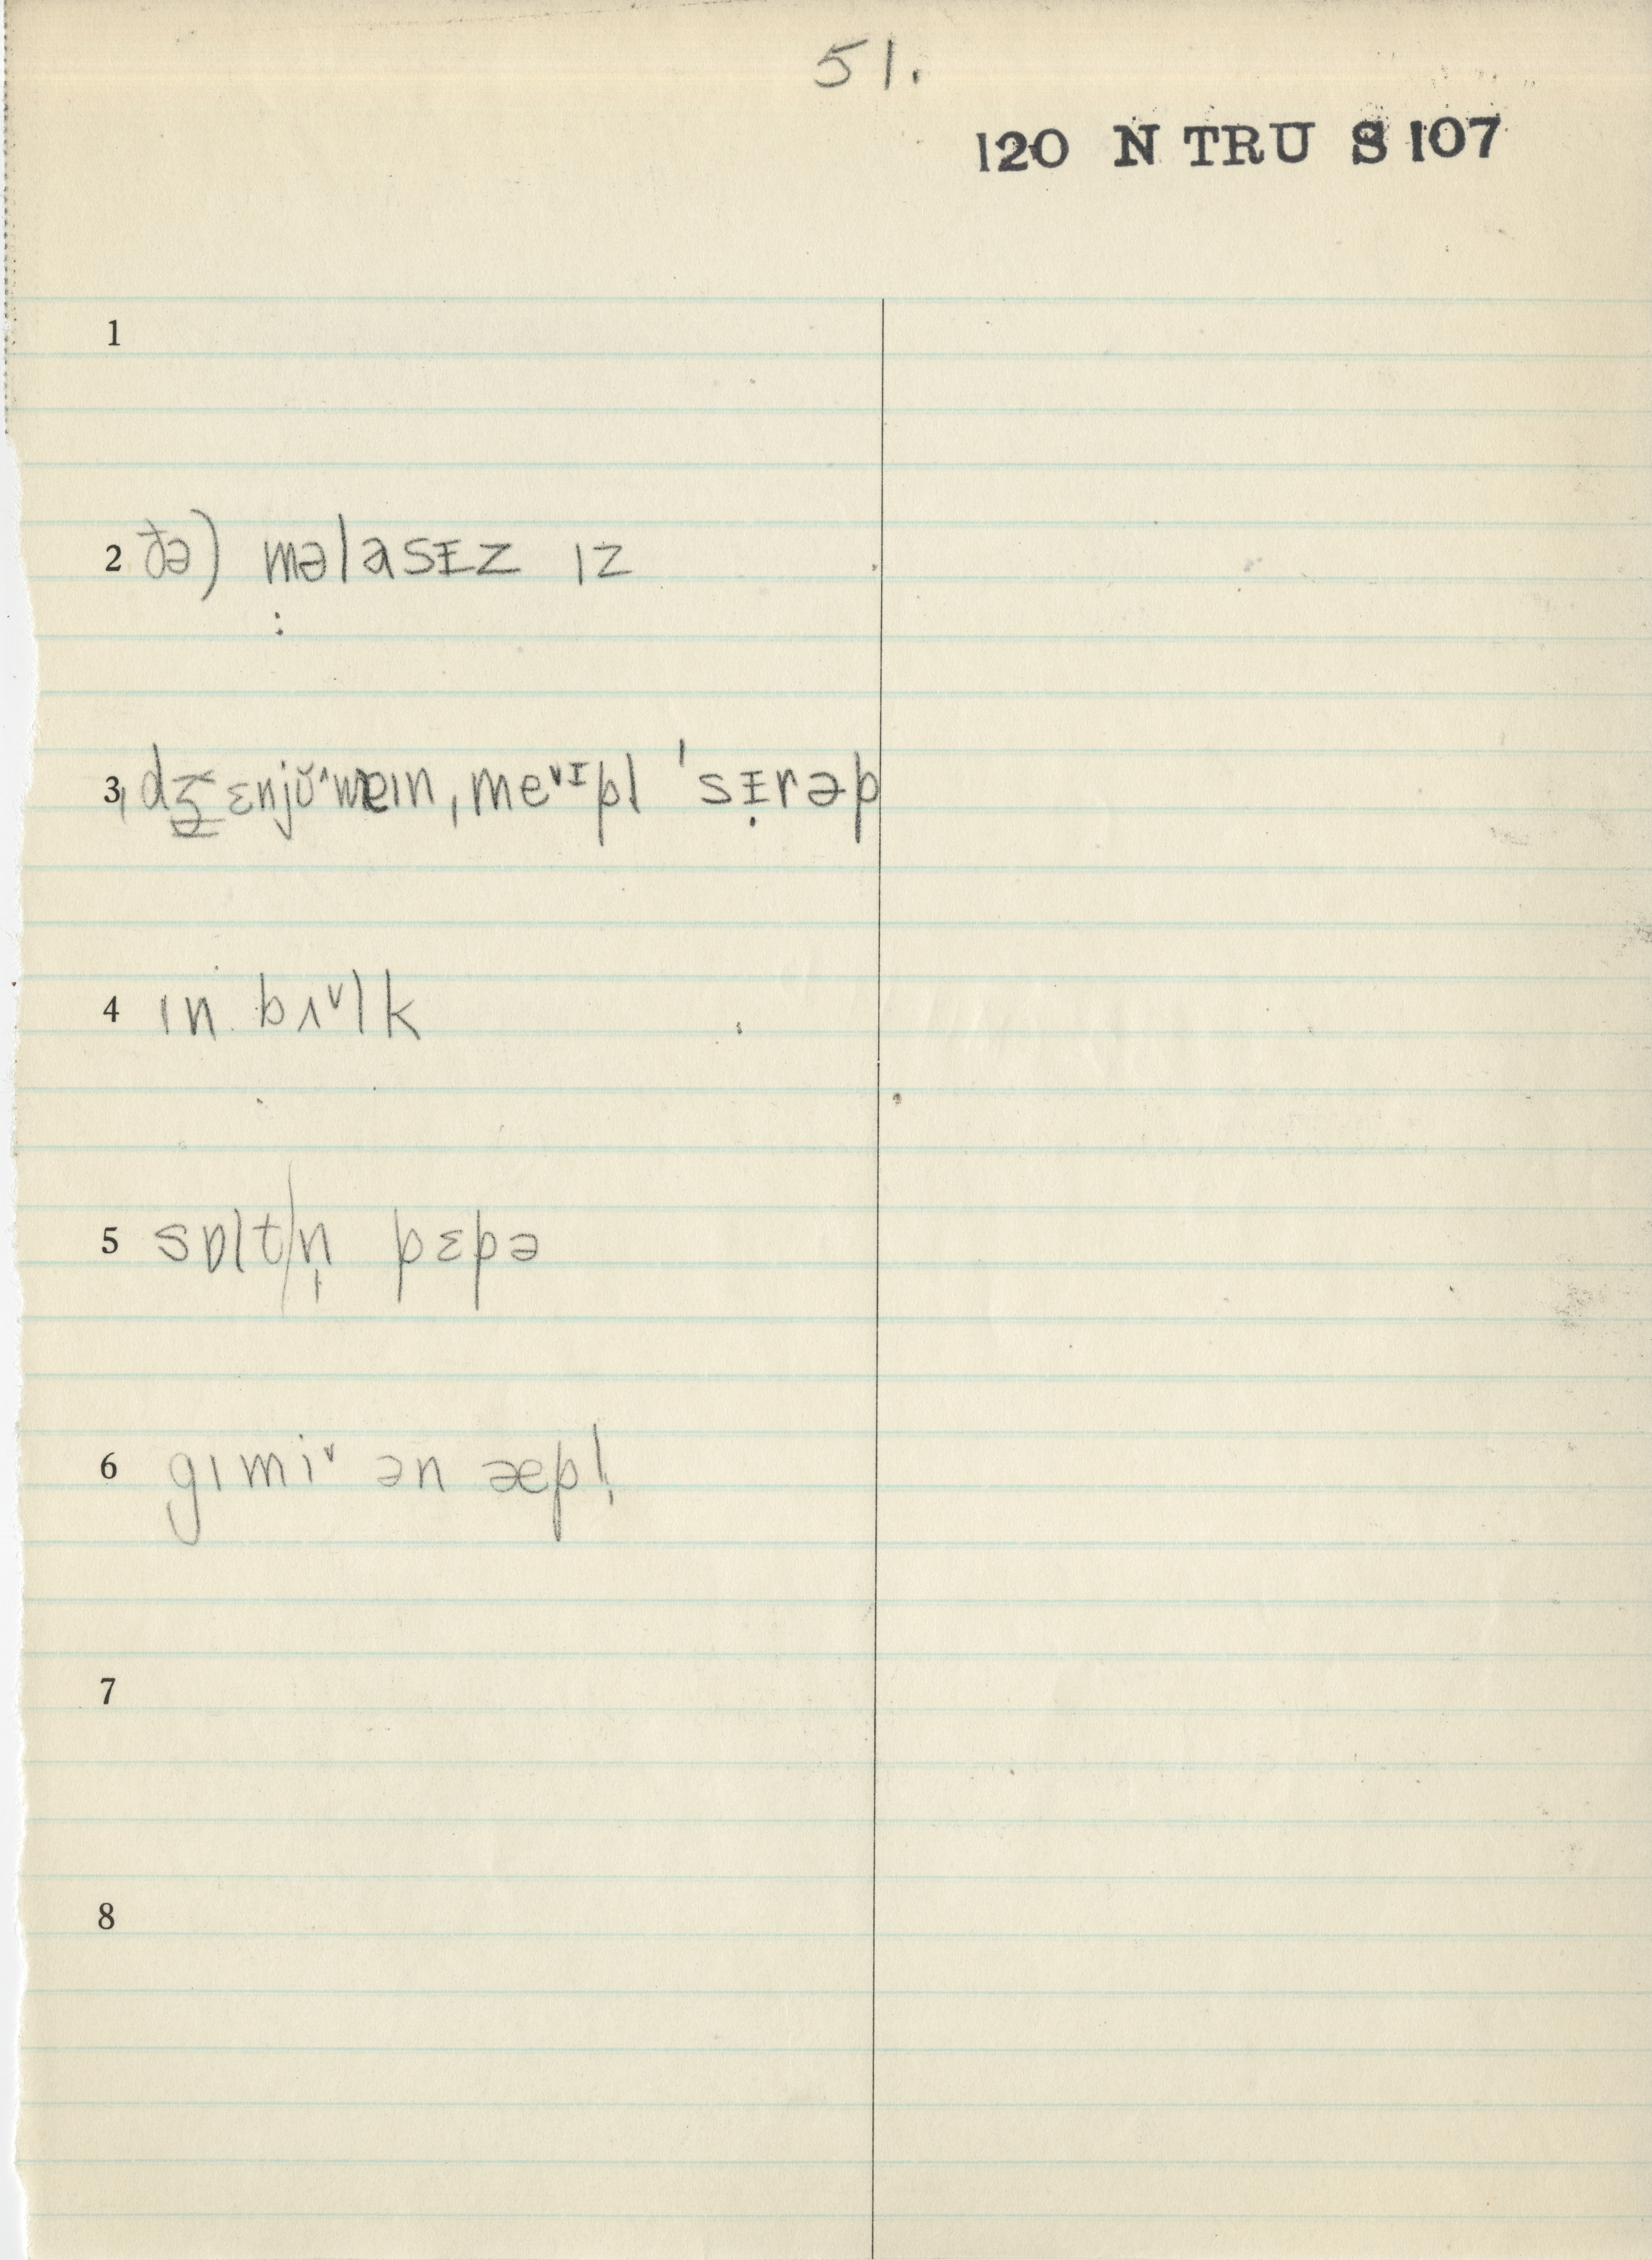 51.
120 N TRU S 107
1
2 đə) məlasɪ̵z ɪz
:
3 ˌdʒɛnjŭ˄weɪn, meˇᵻpl ˈsᵻ̣rəp
4 ɪn bʌˇlk
5 sɒltn̩ pɛpə
6 gɪmiˇ ən æpl̩
7
8